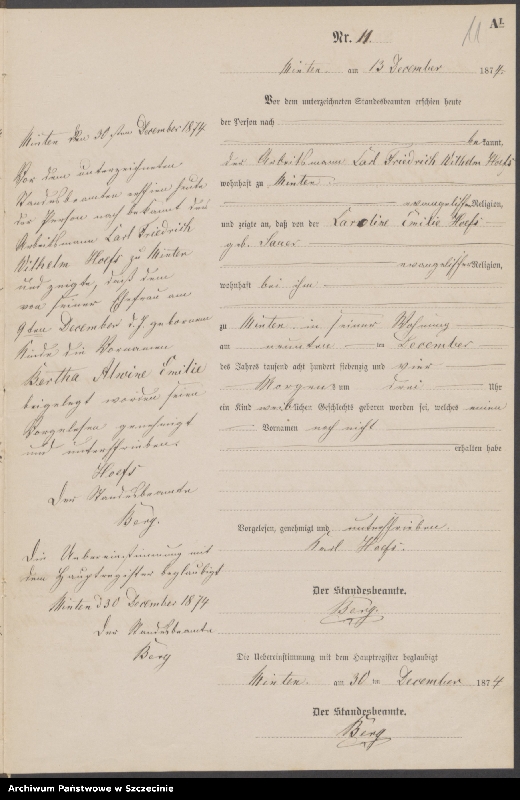 11
A1.
Nr. 11.
Minten am 13 December 1874.
Vor dem unterzeichneten Standesbeamten erschien heute
der Person nach
bekannt,
der Arbeitsmann Carl Friedrich Wilhelm Hoefs
wohnhaft zu Minten
evangelischer Religion,
und zeigte an, daß von der Caroline Emilie Hoefs
geb.
evangelischer Religion,
wohnhaft bei ihm
zu Minten in seiner Wohnung
am neunten ten December
des Jahres tausend acht hundert siebenzig und vier
Morgens um drei Uhr
ein Kind weiblichen Geschlechts geboren worden sei, welches einen
Vornamen noch nicht
erhalten habe
Vorgelesen, genehmigt und unterschrieben.
Karl Hoefs.
Der Standesbeamte.
Berg.
Die Uebereinstimmung mit dem Hauptregister beglaubigt
Minten am 30 ten December 1874
Der Standesbeamte.
Berg
Minten den 30 sten December 1874
Vor dem unterzeichneten
Standesbeamten erschien heute
der Person nach bekannt der
Arbeitsmann Carl Friedrich
Wilhelm Hoefs zu Minten
und zeigte, daß dem
von seiner Ehefrau am
9 ten December d. J. geborenen
Kinde die Vornamen
Bertha Alwine Emilie
beigelegt worden seien
Vorgelesen genehmigt
und unterschrieben.
Hoefs
Der Standesbeamte
Berg.
Die Uebereinstimmung mit
dem Hauptregister beglaubigt
Minten d 30 December 1874
Der Standesbeamte
Berg
Archiwum Państwowe w Szczecinie